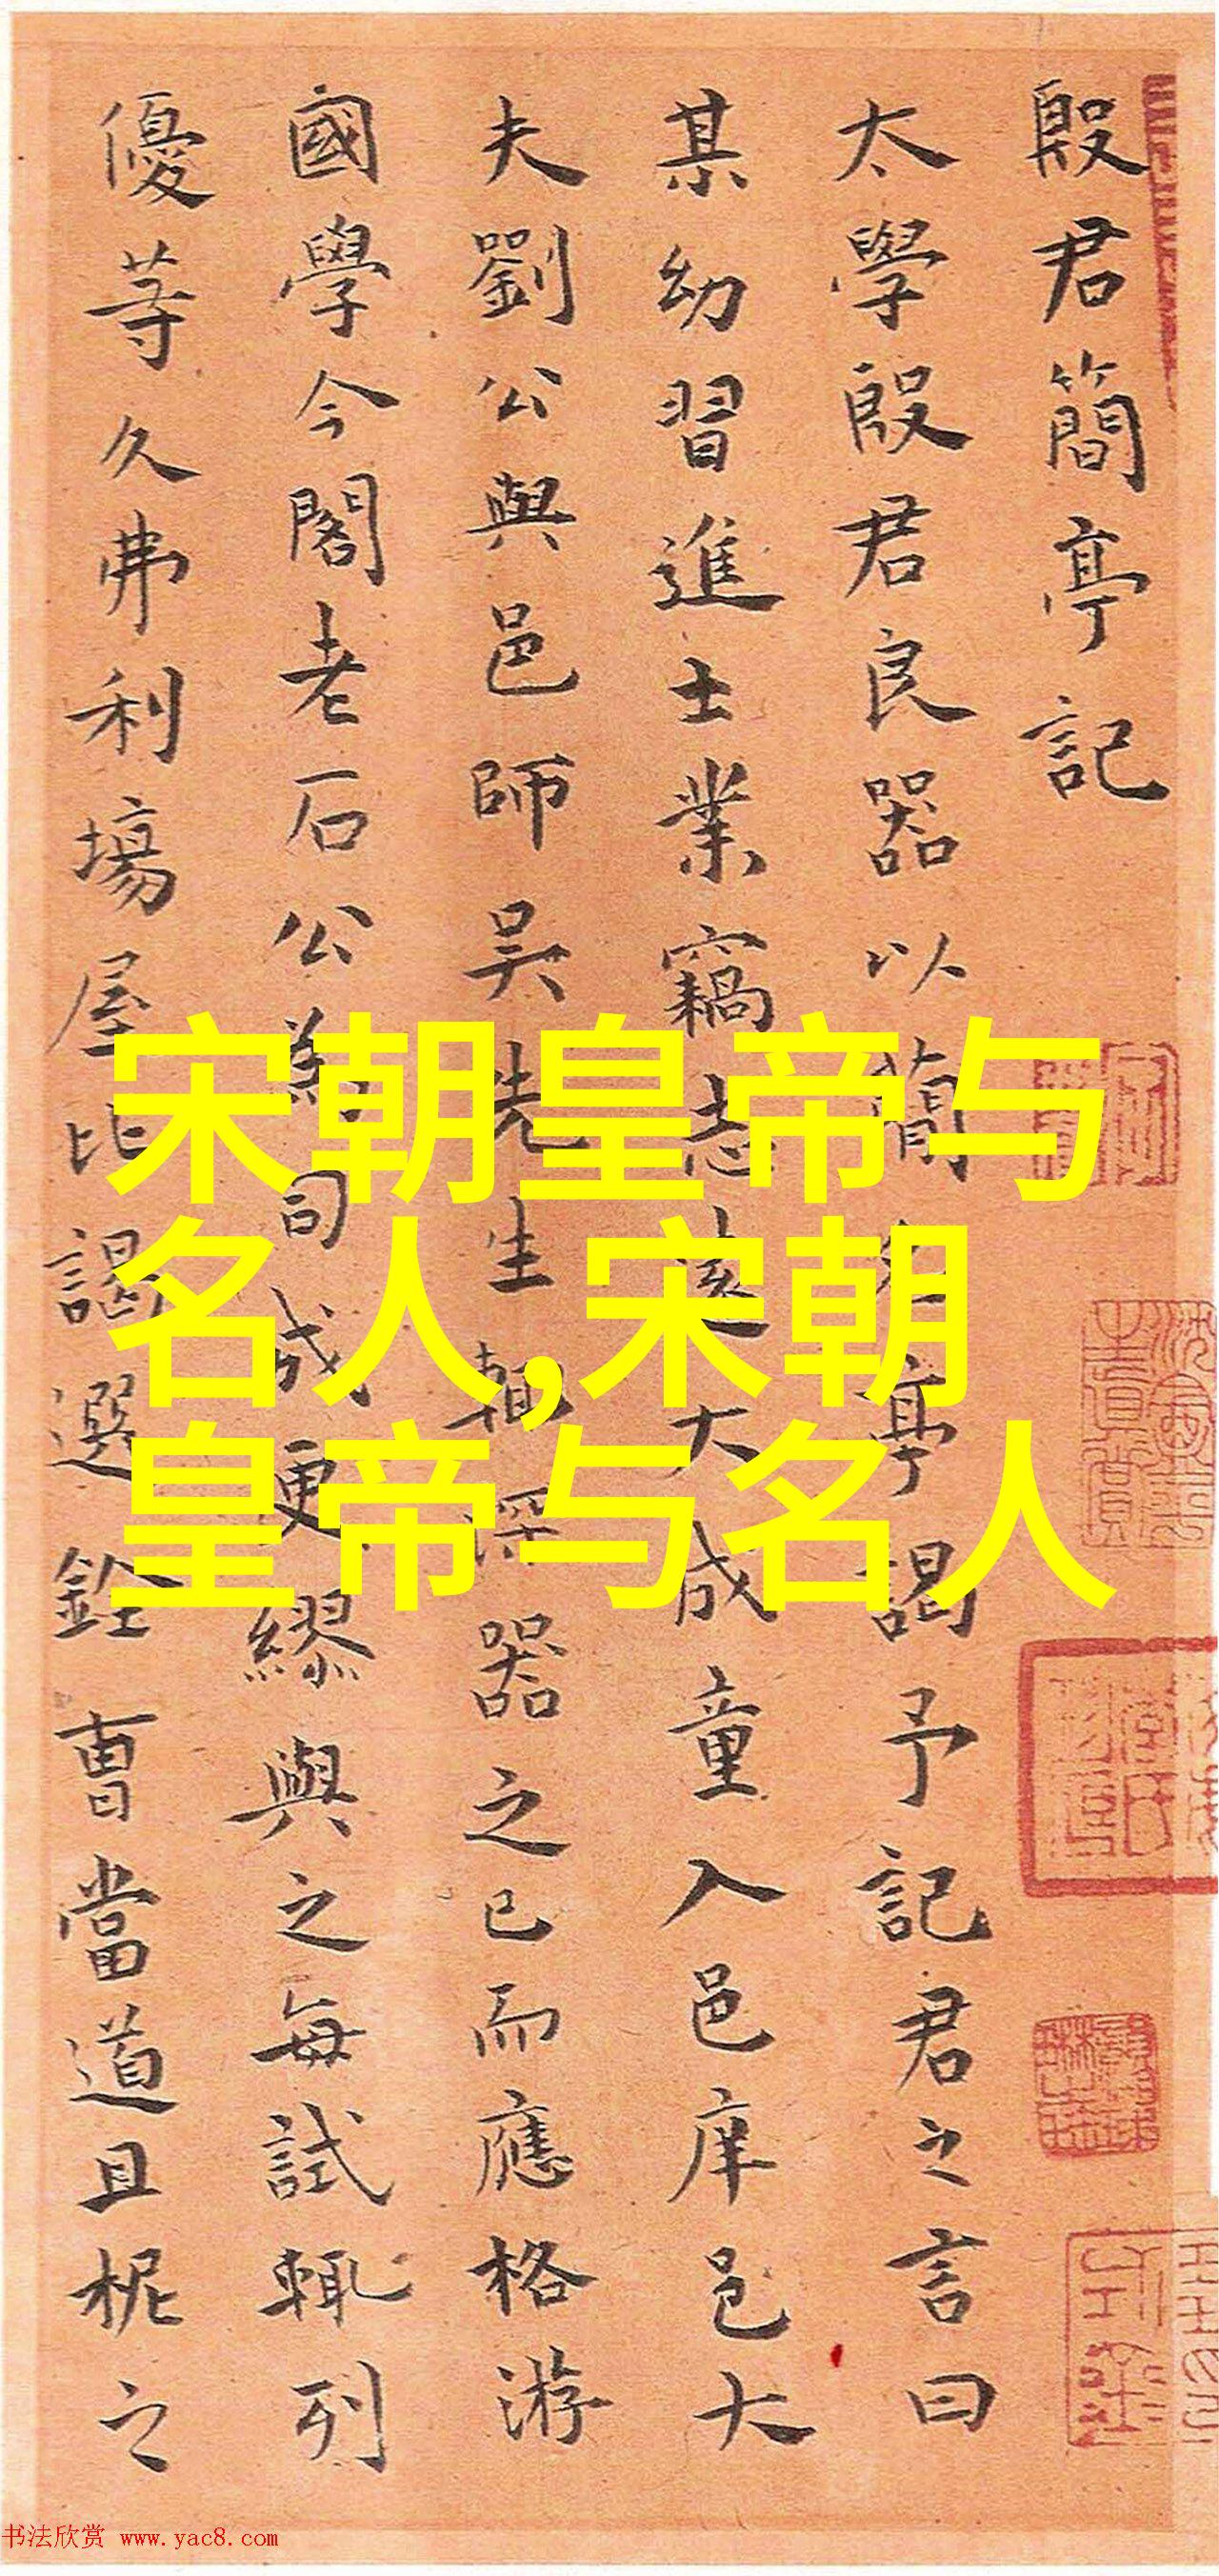 殷君簡亭記
太學殷君良器以簡名亭謁予記君之言曰
某幼習進士業竊志遠大成童入邑庠邑大
夫劉公與邑師吴先生輒深器之已而應格游
國學今閣老石公為司成更繆與之每試輒列
優等久弗利場屋比謁選銓曹當道且柅之
宋朝皇帝与
名人,宋朝
皇帝与名人
书法欣赏 www.yac8.com